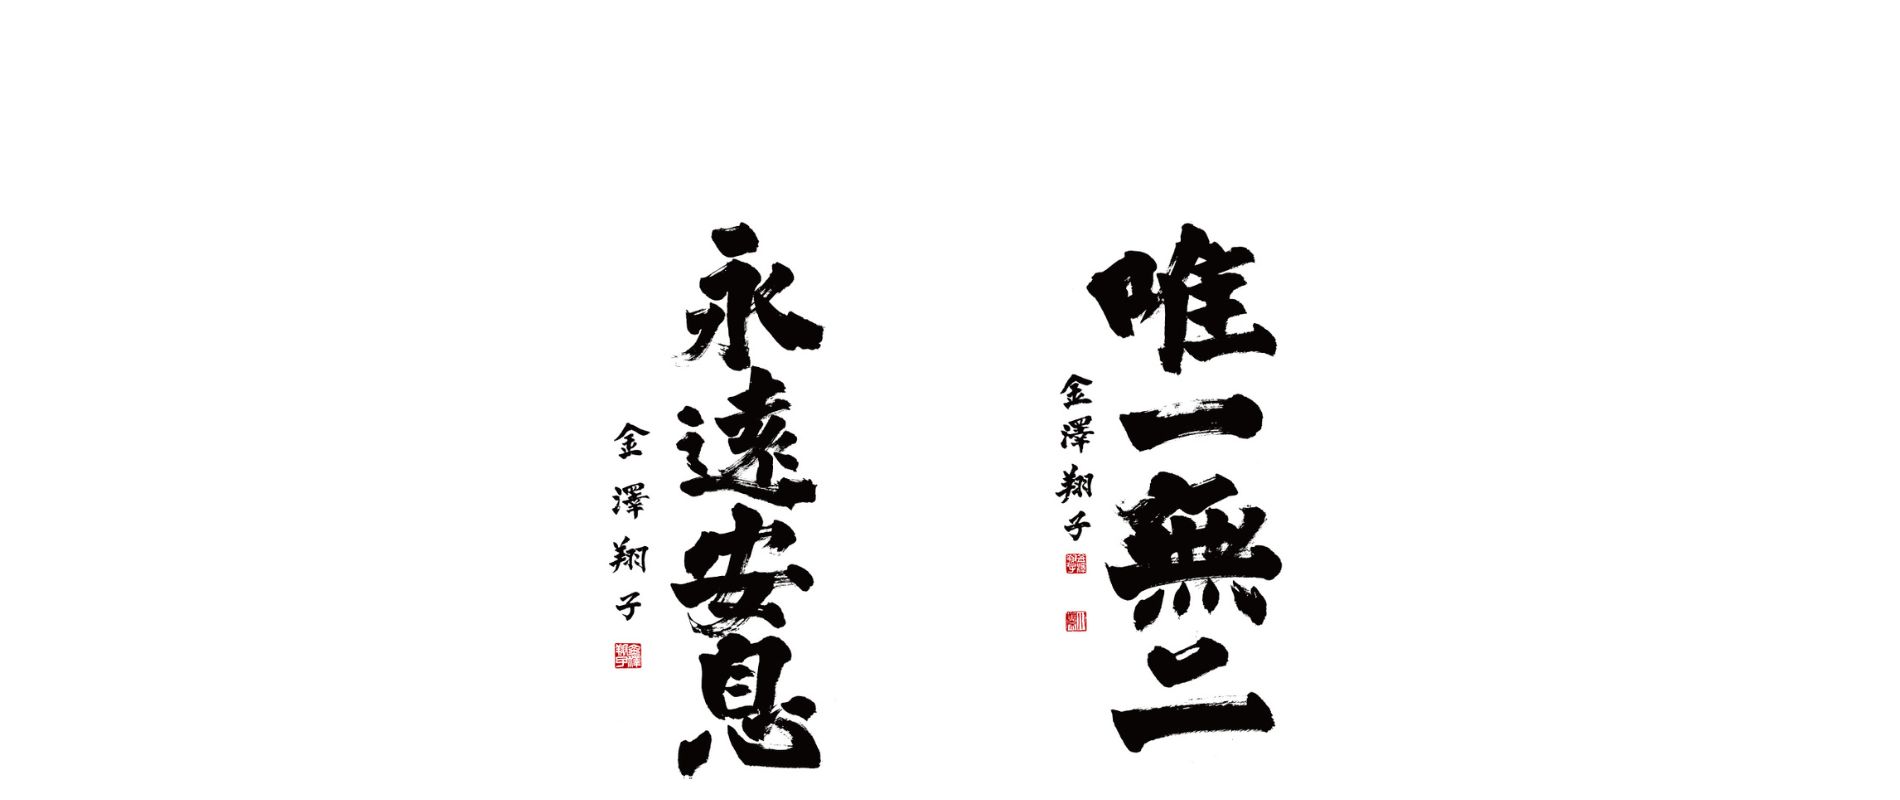 唯一無二
金澤翔子
永遠安息
金澤翔子